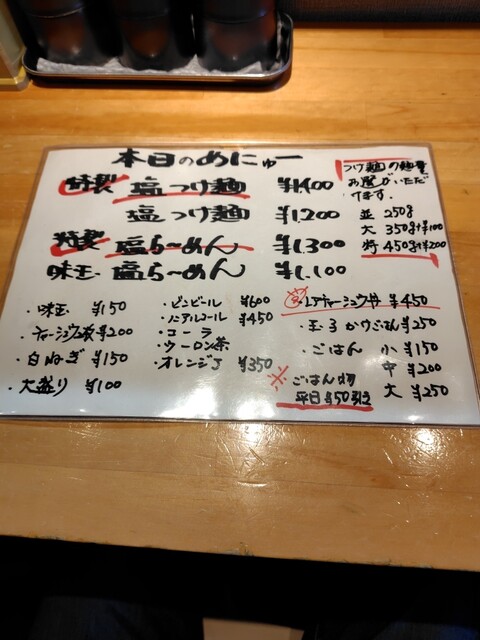 本日のめにゅー
特製 塩つけ麺 ¥1,400
塩つけ麺 ¥1,200
特製 塩らーめん ¥1,300
味玉 塩らーめん ¥1,100
つけ麺の麺量
お選びいただ
けます。
並 250g
大 350g+¥100
特 450g+¥200
・味玉 ¥150
・チャーシュー2枚 ¥200
・白ねぎ ¥150
・大盛り ¥100
・ビンビール ¥600
・ノンアルコール ¥450
・コーラ
・ウーロン茶
・オレンジJ ¥350
・レアチャーシュウ丼 ¥450
・玉子かけごはん ¥250
・ごはん 小 ¥150
中 ¥200
大 ¥250
※ごはん物
平日¥50引き